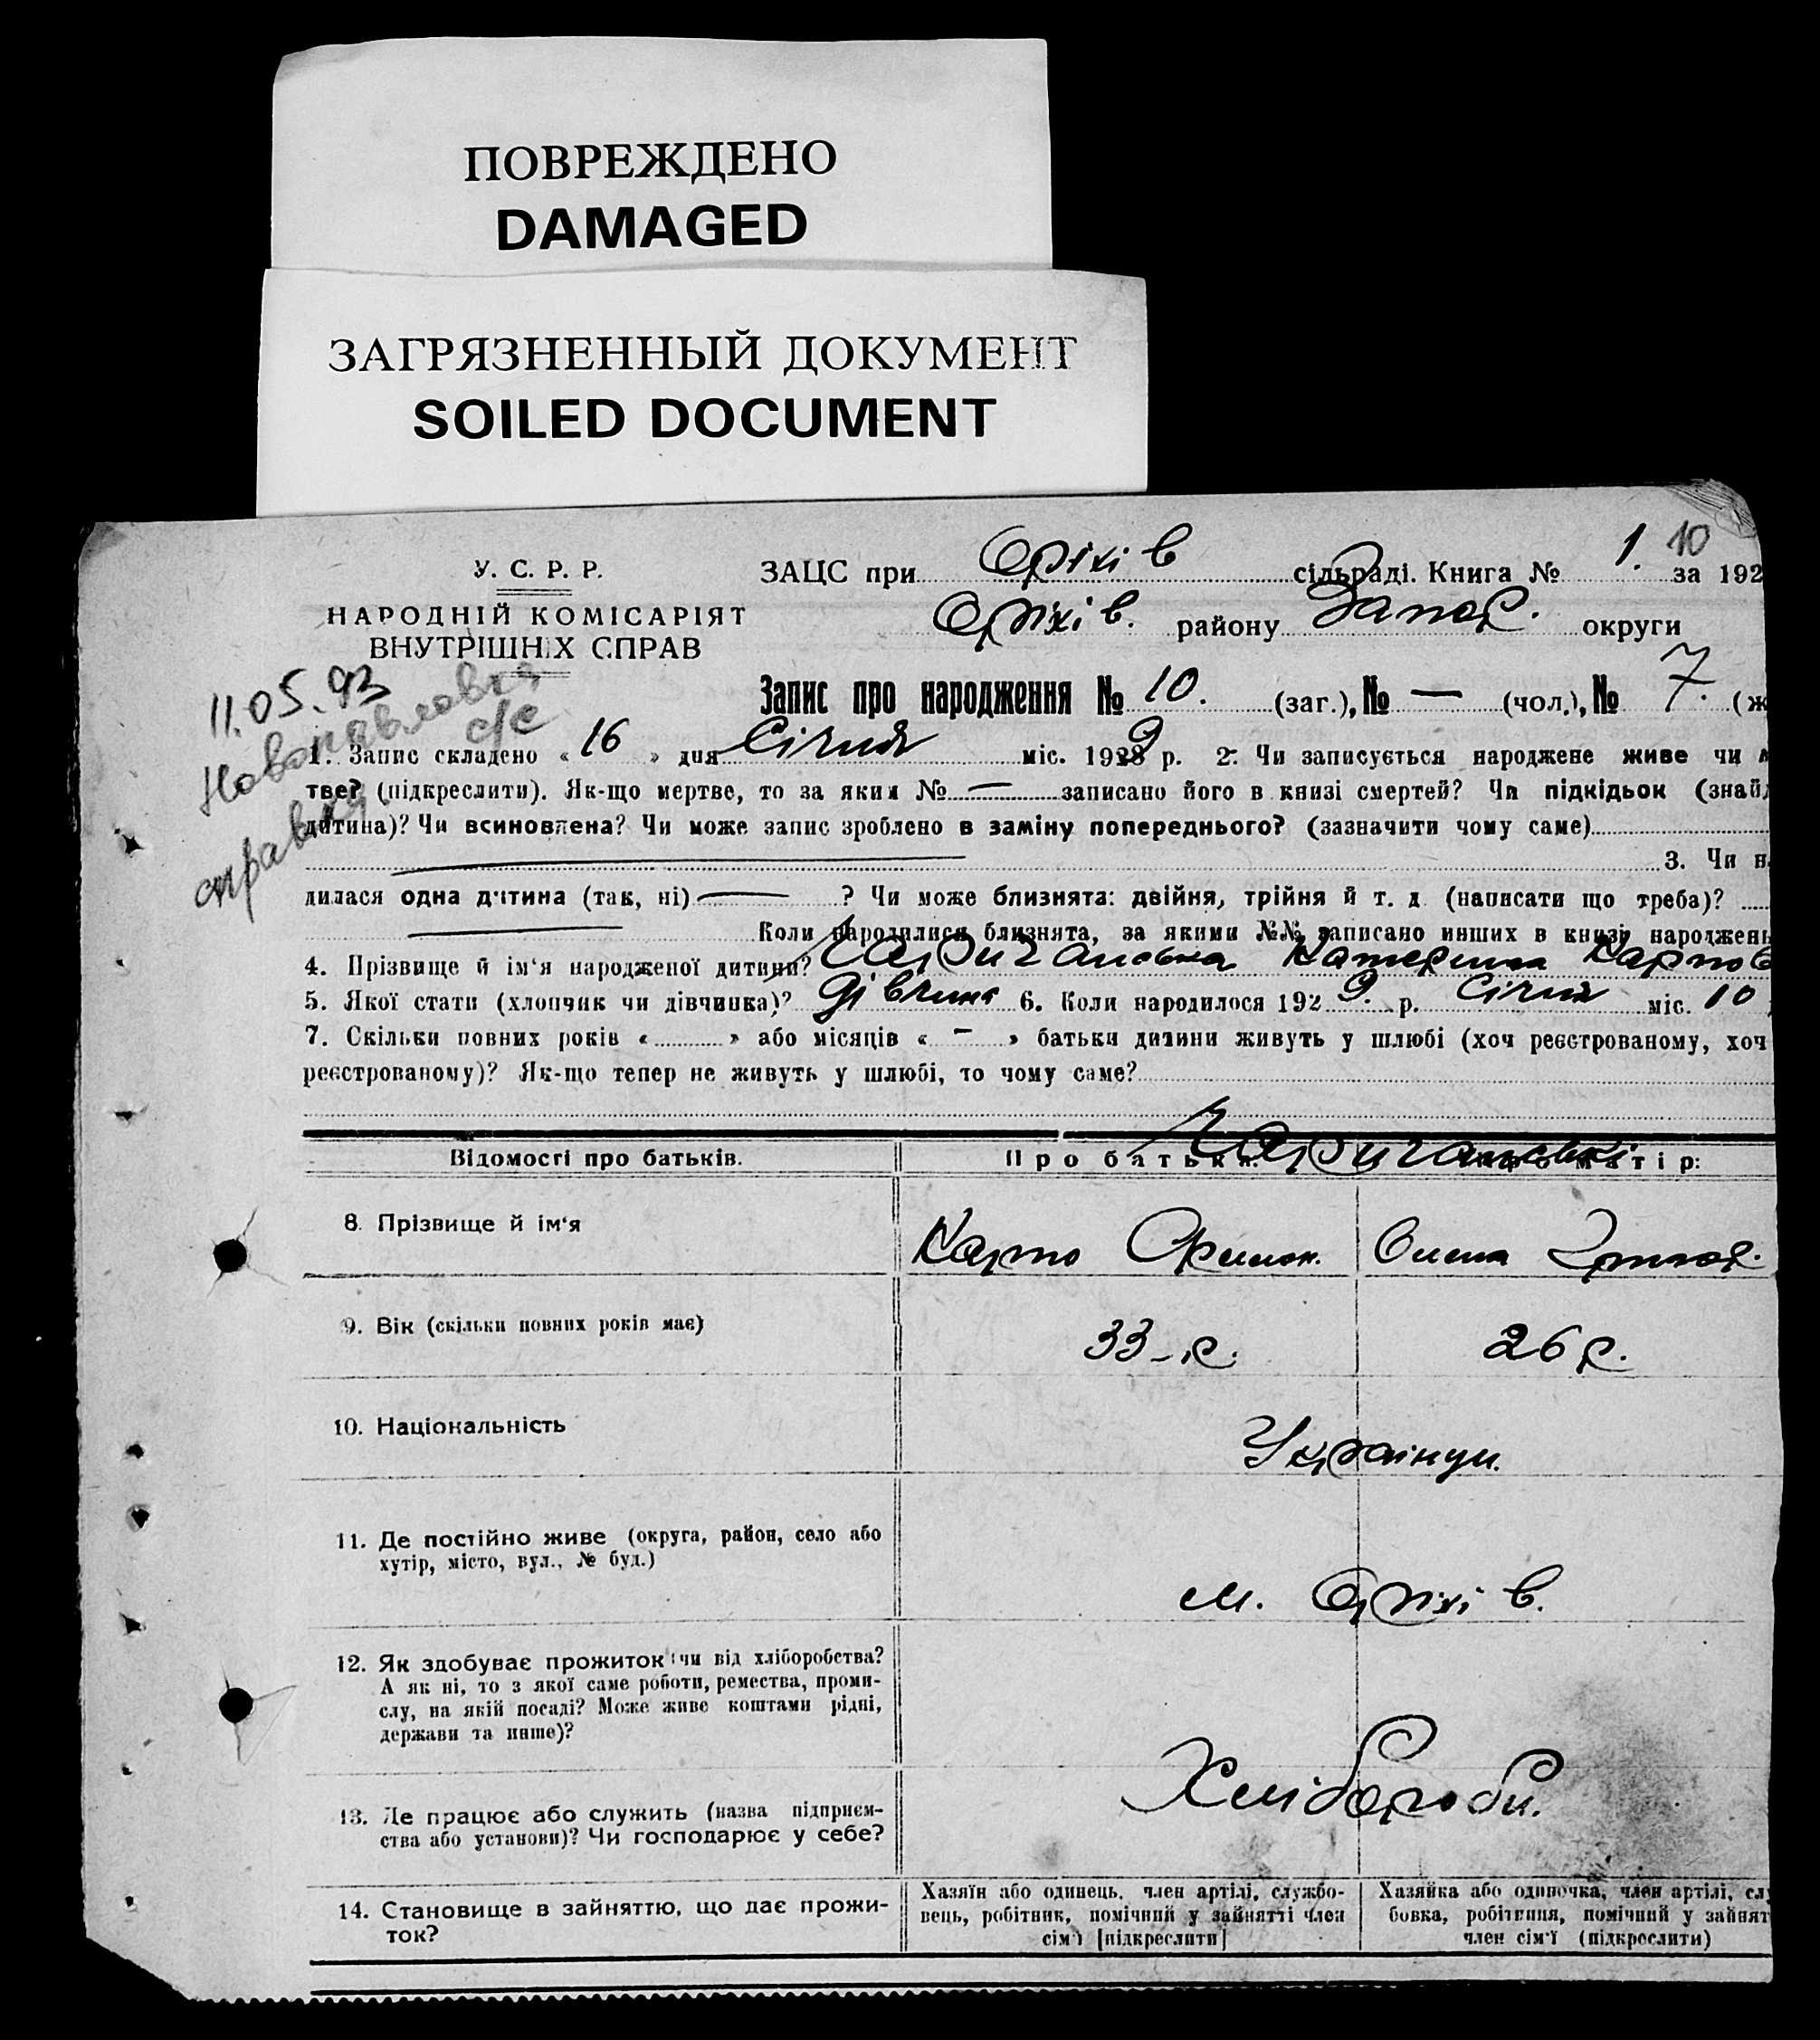 ПОВРЕЖДЕНО
DAMAGED
ЗАГРЯЗНЕННЫЙ ДОКУМЕНТ
SOILED DOCUMENT
У. С. Р. Р.
НАРОДНІЙ КОМІСАРІЯТ
ВНУТРІШНІХ СПРАВ
ЗАЦС при Оріхів сільраді. Книга № 1. за 192
10
Оріхів. району Запор. округи
11.05.93
Новопавловка
с/с
справка
Запис про народження № 10. (заг.), № — (чол.), № 7. (ж
1. Запис складено « 16 » дня Січня міс. 1929 р. 2. Чи записується народжене живе чи м
тве? (підкреслити). Як-що мертве, то за яким № — записано його в книзі смертей? Чи підкідьок (знайд
дитина)? Чи всиновлена? Чи може запис зроблено в заміну попереднього? (зазначити чому саме)
3. Чи на
дилася одна дитина (так, ні) — ? Чи може близнята: двійня, трійня й т. д. (написати що треба)?
Коли народилися близнята, за якими №№ записано инших в книзі народжень
4. Прізвище й ім'я народженої дитини? Чаричанська Катерина Карпов
5. Якої стати (хлопчик чи дівчинка)? дівчина 6. Коли народилося 1929. р. Січня міс. 10
7. Скільки повних років « » або місяців « - » батьки дитини живуть у шлюбі (хоч реєстрованому, хоч
реєстрованому)? Як-що тепер не живуть у шлюбі, то чому саме?
Чаричанські
Відомості про батьків. Про батька: Про матір:
8. Прізвище й ім'я Карпо Олена
9. Вік (скільки повних років має) 33-р. 26 р.
10. Національність Українци.
11. Де постійно живе (округа, район, село або
хутір, місто, вул., № буд.)
м. Оріхів.
12. Як здобуває прожиток (чи від хліборобства?
А як ні, то з якої саме роботи, ремества, проми-
слу, на якій посаді? Може живе коштами рідні,
держави та инше)?
Хлібороби.
13. Де працює або служить (назва підприєм-
ства або установи)? Чи господарює у себе?
14. Становище в зайняттю, що дає прожи-
ток?
Хазяїн або одинець, член артілі, службо-
вець, робітник, помічний у зайнятті член
сім'ї [підкреслити]
Хазяйка або одиночка, член артілі, слу
бовка, робітниця, помічний у зайнят
член сім'ї (підкреслити)